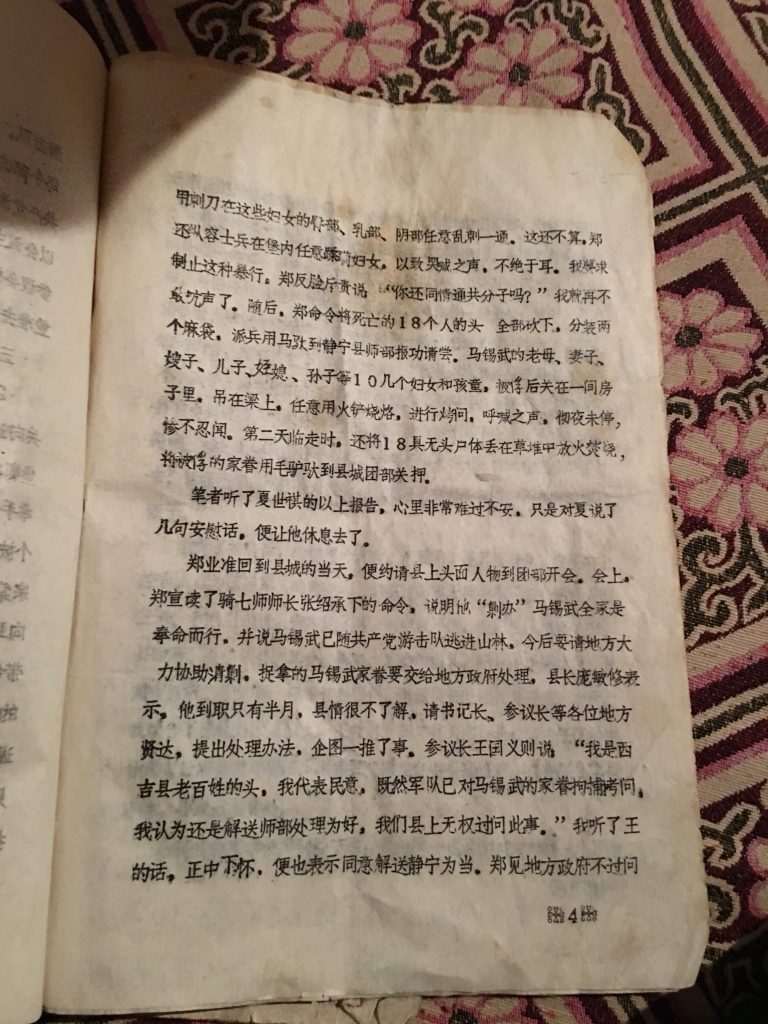 用刺刀在这些妇女的臀部、乳部、阴部任意乱刺一通。这还不算,郑
还纵容士兵在堡内任意蹂躏妇女,以致哭喊之声,不绝于耳。我要求
制止这种暴行,郑反脸斥责说:“你还同情通共分子吗?”我就再不
敢吭声了。随后,郑命令将死亡的18个人的头 全部砍下,分装两
个麻袋,派兵用马驮到静宁县师部报功请尝。马锡武的老母、妻子、
嫂子、儿子、侄媳、孙子等10几个妇女和孩童,被俘后关在一间房
子里。吊在梁上,任意用火铲烧烙,进行拷问。呼喊之声,彻夜未停,
惨不忍闻。第二天临走时,还将18具无头尸体丢在草堆中放火焚烧,
将被俘的家眷用毛驴驮到县城团部关押。
笔者听了夏世祺的以上报告,心里非常难过不安,只是对夏说了
几句安慰话,便让他休息去了。
郑业准回到县城的当天,便约请县上头面人物到团部开会。会上,
郑宣读了骑七师师长张绍承下的命令,说明他“剿办”马锡武全家是
奉命而行。并说马锡武已随共产党游击队逃进山林,今后要请地方大
力协助清剿。捉拿的马锡武家眷要交给地方政府处理。县长庞敏修表
示,他到职只有半月,县情很不了解,请书记长、参议长等各位地方
贤达,提出处理办法,企图一推了事。参议长王国义则说:“我是西
吉县老百姓的头,我代表民意,既然军队已对马锡武的家眷拘捕考问,
我认为还是解送师部处理为好,我们县上无权过问此事。”我听了王
的话,正中下怀,便也表示同意解送静宁为当。郑见地方政府不过问
4